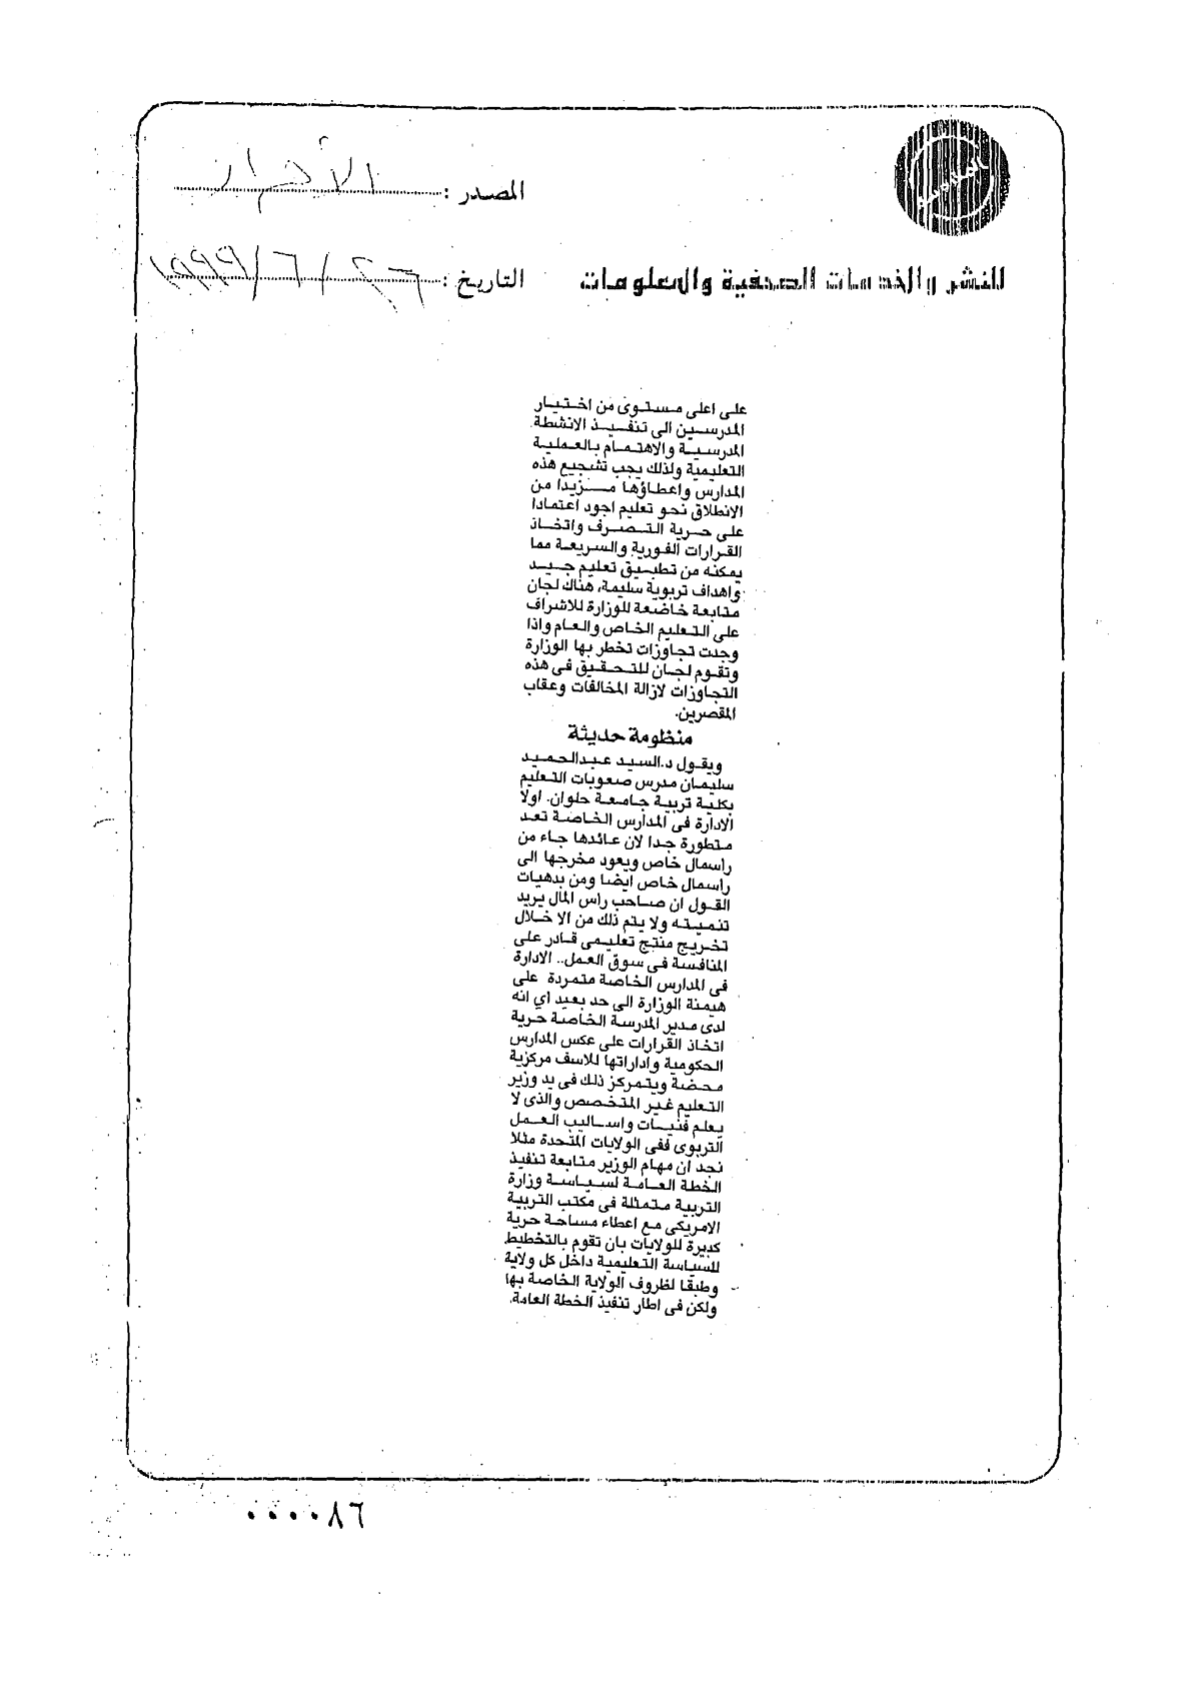 المصدر : الأحرار
للنشر والخدمات الصحفية والمعلومات
التاريخ : ٢٦ / ٦ / ١٩٩٩
على اعلى مستوى من اختيار
المدرسين الى تنفيذ الانشطة
المدرسية والاهتمام بالعملية
التعليمية ولذلك يجب تشجيع هذه
المدارس واعطاؤها مزيدا من
الانطلاق نحو تعليم اجود اعتمادا
على حرية التصرف واتخاذ
القرارات الفورية والسريعة مما
يمكنه من تطبيق تعليم جيد
واهداف تربوية سليمة، هناك لجان
متابعة خاضعة للوزارة للاشراف
على التعليم الخاص والعام واذا
وجدت تجاوزات تخطر بها الوزارة
وتقوم لجان للتحقيق فى هذه
التجاوزات لازالة المخالفات وعقاب
المقصرين.
منظومة حديثة
ويقول د.السيد عبدالحميد
سليمان مدرس صعوبات التعليم
بكلية تربية جامعة حلوان. اولا
الادارة فى المدارس الخاصة تعد
متطورة جدا لان عائدها جاء من
راسمال خاص ويعود مخرجها الى
راسمال خاص ايضا ومن بدهيات
القول ان صاحب راس المال يريد
تنميته ولا يتم ذلك من الا خلال
تخريج منتج تعليمى قادر على
المنافسة فى سوق العمل.. الادارة
فى المدارس الخاصة متمردة على
هيمنة الوزارة الى حد بعيد اي انه
لدى مدير المدرسة الخاصة حرية
اتخاذ القرارات على عكس المدارس
الحكومية واداراتها للاسف مركزية
محضة ويتمركز ذلك فى يد وزير
التعليم غير المتخصص والذى لا
يعلم فنيات واساليب العمل
التربوى ففى الولايات المتحدة مثلا
نجد ان مهام الوزير متابعة تنفيذ
الخطة العامة لسياسة وزارة
التربية متمثلة فى مكتب التربية
الامريكى مع اعطاء مساحة حرية
كبيرة للولايات بان تقوم بالتخطيط
للسياسة التعليمية داخل كل ولاية
وطبقا لظروف الولاية الخاصة بها
ولكن فى اطار تنفيذ الخطة العامة.
٠٠٠٠٨٦